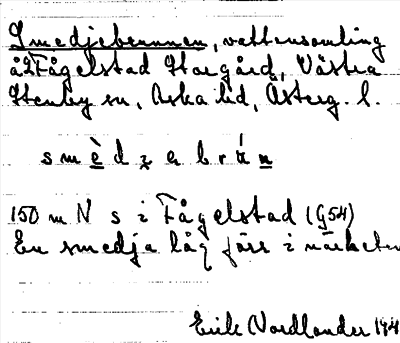 Smedjebrunnen, vattensamling
å Fågelstad Storgård, Västra
Stenby sn, Aska hd, Österg. l.
smèdzabrún
150 m N s i Fågelstad (G54)
En smedja låg förr i närheten
Erik Nordlander 194